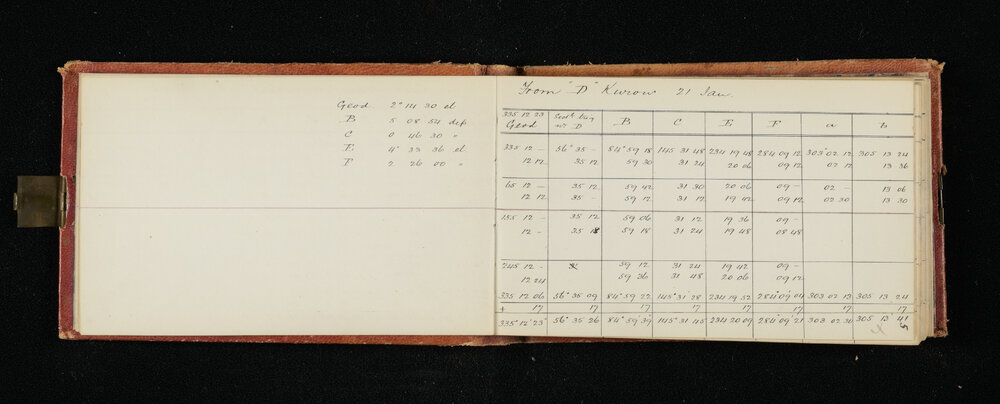 Geod. 2° 14 30 el
B 5 08 54 dep
C 0 46 30 "
E 4° 33 36 el
F 2 26 00 "
From "D" Kurow 21 Jan.
335 12 23 Geod B C E F a b
D
335 12 — 56° 35 — 84° 59 18 145 31 48 234 19 48 284 09 12 303° 02 12 305 13 24
12 12 35 12 59 30 31 24 20 06 09 12 02 12 13 36
65 12 — 35 12 59 42 31 30 20 06 09 — 02 — 13 06
12 12 35 — 59 12 31 12 19 42 09 12 02 30 13 30
155 12 — 35 12 59 06 31 12 19 36 09 —
12 — 35 18 59 18 31 24 19 48 08 48
245 12 — 59 12 31 24 19 42 09 —
12 24 59 36 31 48 20 06 09 12
335 12 06 56° 35 09 84° 59 22 145° 31' 28 234 19 52 284° 09' 04 303 02 13 305 13 24
+ 17 17 17 17 17 17 17 17
335° 12' 23" 56° 35 26 84° 59' 39 145° 31 45 234 20 09 284° 09' 21 303 02 30 305 13 41